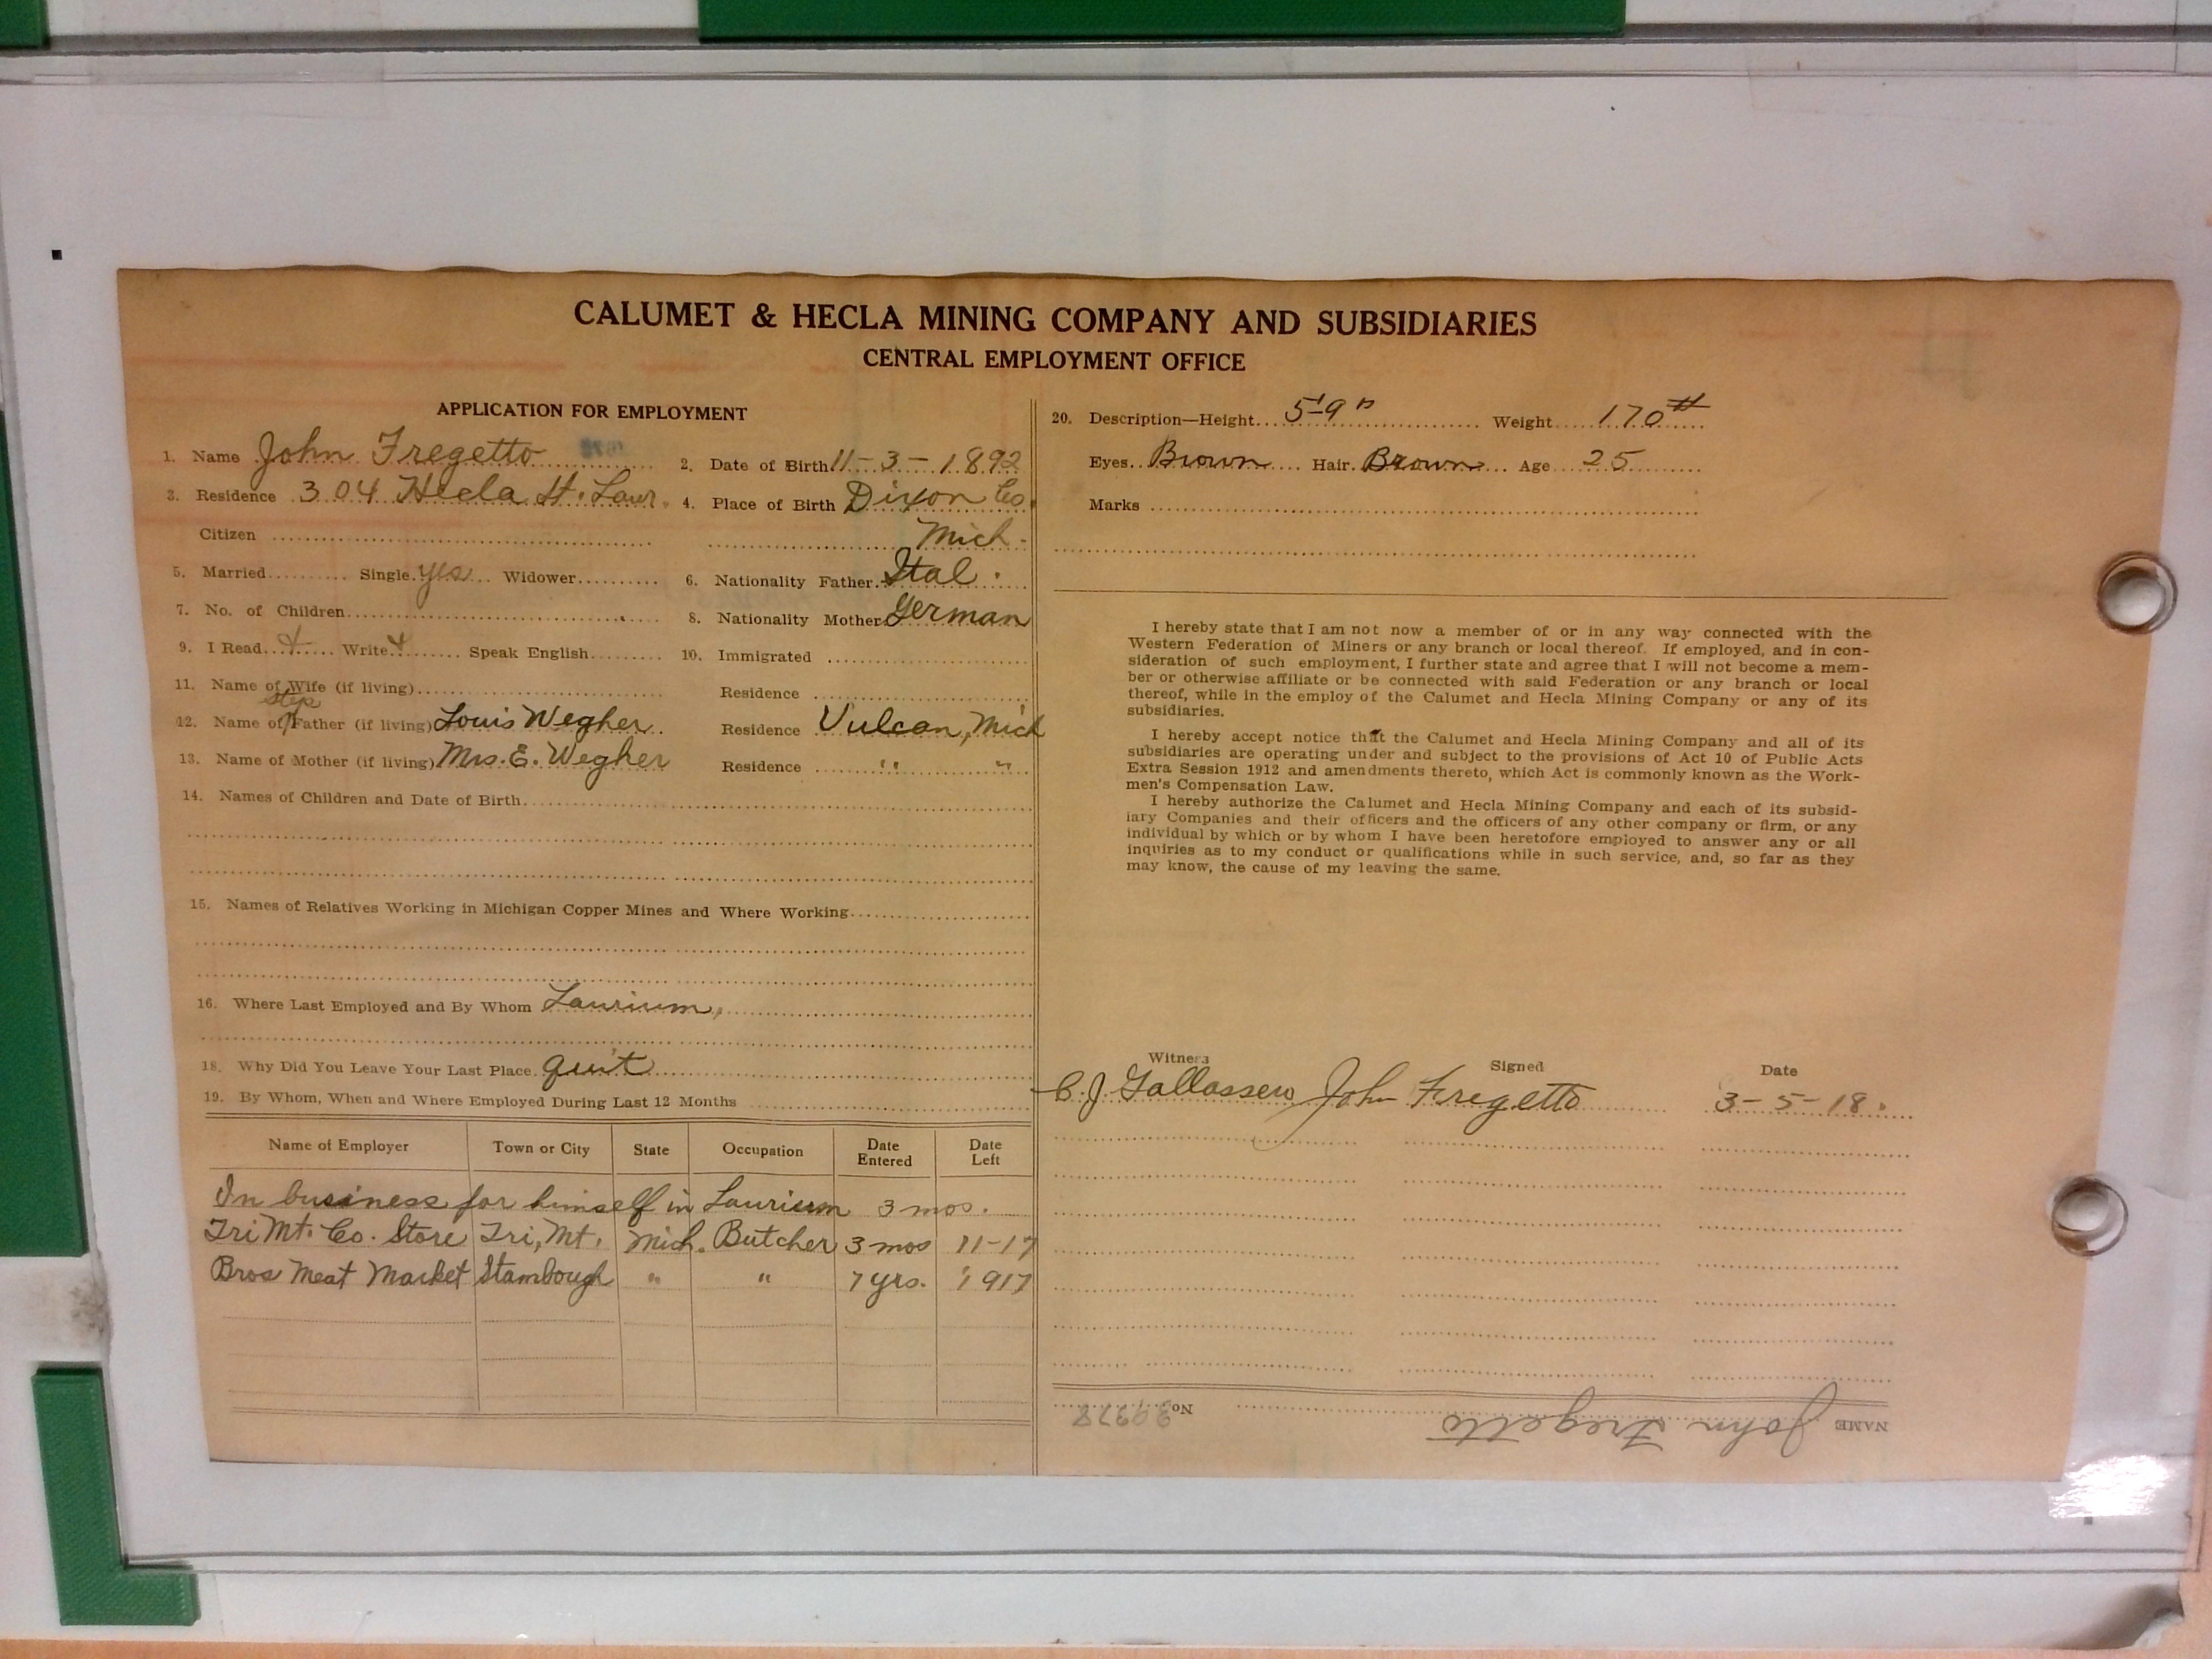 CALUMET & HECLA MINING COMPANY AND SUBSIDIARIES
CENTRAL EMPLOYMENT OFFICE
APPLICATION FOR EMPLOYMENT
1. Name John Fregetto 2. Date of Birth 11-3-1892
3. Residence 304 Hecla St. Laur. 4. Place of Birth Dixon Co.
Citizen Mich.
5. Married Single yes Widower 6. Nationality Father Ital.
7. No. of Children 8. Nationality Mother German
9. I Read Write Speak English 10. Immigrated
11. Name of Wife (if living) Residence
step
12. Name of Father (if living) Louis Wegher Residence Vulcan, Mich
13. Name of Mother (if living) Mrs. E. Wegher Residence " "
14. Names of Children and Date of Birth
15. Names of Relatives Working in Michigan Copper Mines and Where Working
16. Where Last Employed and By Whom Laurium,
18. Why Did You Leave Your Last Place quit
19. By Whom, When and Where Employed During Last 12 Months
Name of Employer Town or City State Occupation Date Entered Date Left
In business for himself in Laurium 3 mos.
Tri Mt. Co. Store Tri, Mt. Mich. Butcher 3 mos 11-17
Bros Meat Market Stambough " " 7 yrs. 1917
20. Description—Height 5'-9" Weight 170#
Eyes Brown Hair Brown Age 25
Marks
I hereby state that I am not now a member of or in any way connected with the
Western Federation of Miners or any branch or local thereof. If employed, and in con-
sideration of such employment, I further state and agree that I will not become a mem-
ber or otherwise affiliate or be connected with said Federation or any branch or local
thereof, while in the employ of the Calumet and Hecla Mining Company or any of its
subsidiaries.
I hereby accept notice that the Calumet and Hecla Mining Company and all of its
subsidiaries are operating under and subject to the provisions of Act 10 of Public Acts
Extra Session 1912 and amendments thereto, which Act is commonly known as the Work-
men's Compensation Law.
I hereby authorize the Calumet and Hecla Mining Company and each of its subsid-
iary Companies and their officers and the officers of any other company or firm, or any
individual by which or by whom I have been heretofore employed to answer any or all
inquiries as to my conduct or qualifications while in such service, and, so far as they
may know, the cause of my leaving the same.
Witness Signed Date
C. J. John Fregetto 3-5-18.
NAME John Fregetto No. 30378